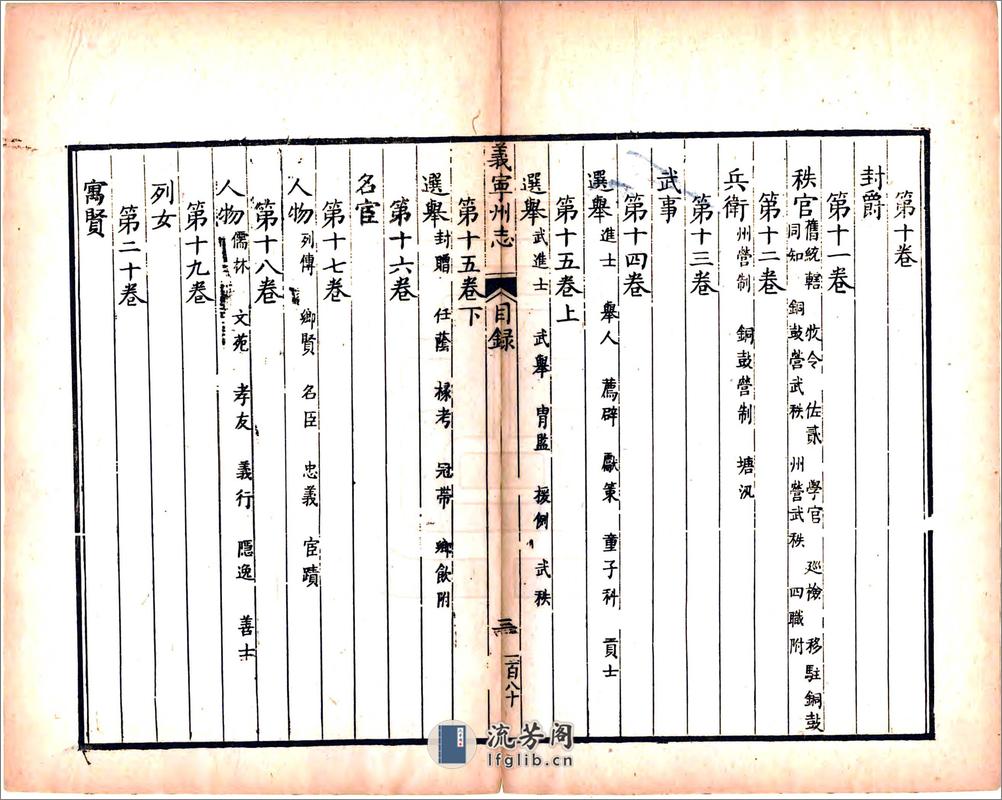 第十卷
封爵
第十一卷
秩官 舊統轄 牧令 佐貳 學官 廵檢 移駐銅鼓
同知 銅鼓營武秩 州營武秩 四職附
第十二卷
兵衛 州營制 銅鼓營制 塘汛
第十三卷
武事
第十四卷
選舉 進士 舉人 薦辟 獻策 童子科 貢士
第十五卷上
選舉 武進士 武舉 胄監 援例 武秩
義寧州志 目録 三 一百八十
第十五卷下
選舉 封贈 任蔭 椽考 冠帶 鄉飲附
第十六卷
名宦
第十七卷
人物 列傳 鄉賢 名臣 忠義 宦蹟
第十八卷
人物 儒林 文苑 孝友 義行 隱逸 善士
第十九卷
列女
第二十卷
寓賢
流芳阁
lfglib.cn